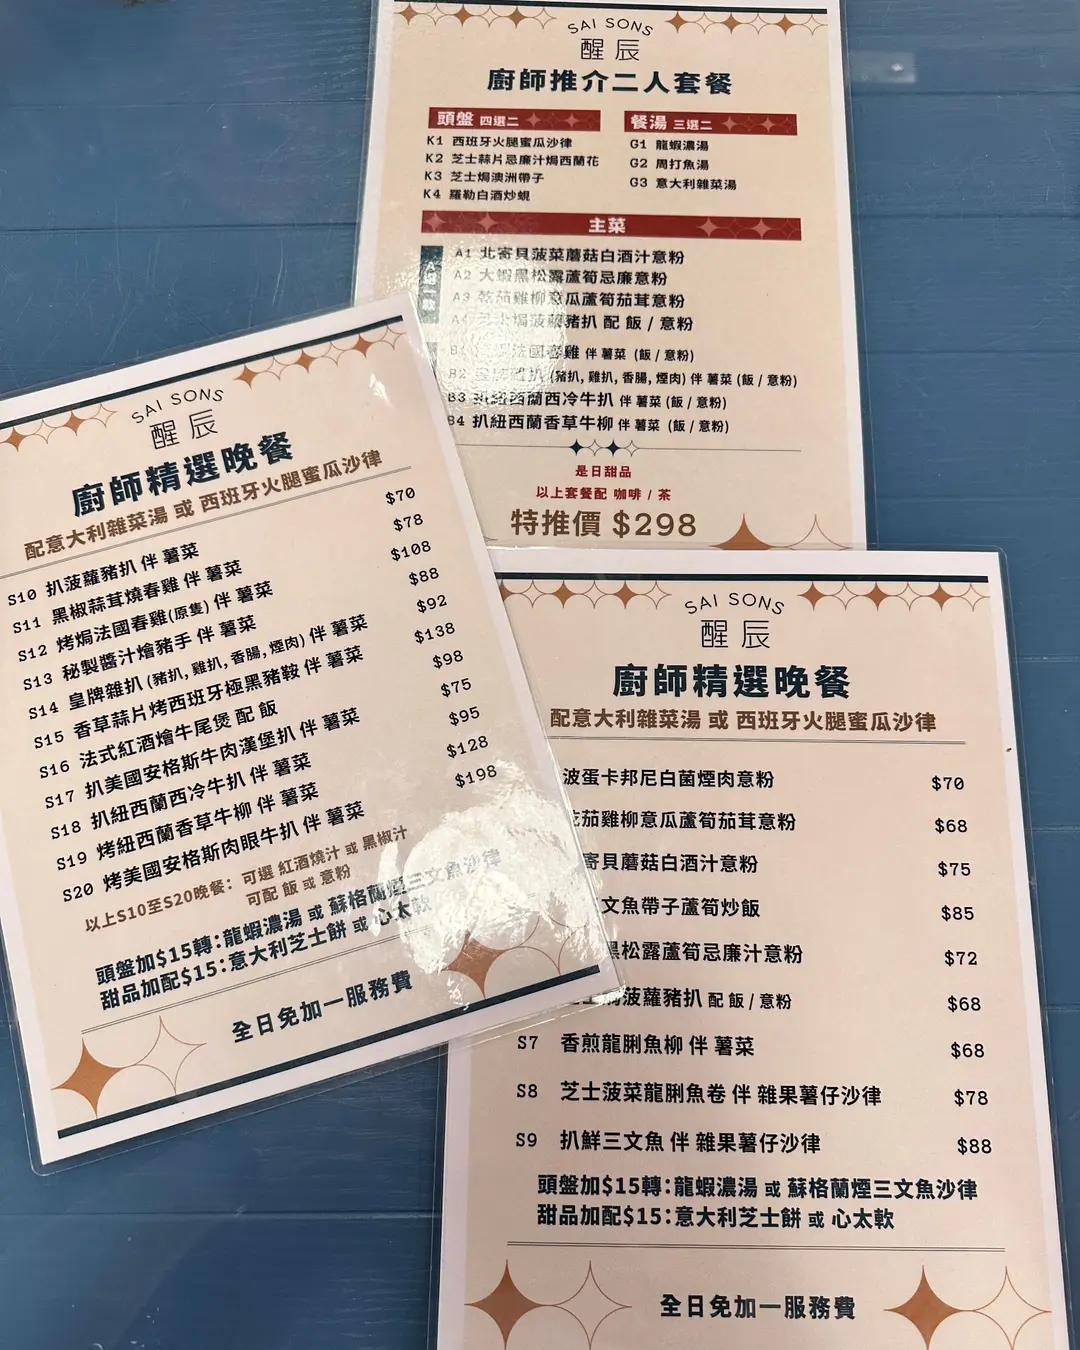 SAI SONS
醒辰
廚師推介二人套餐
頭盤 四選二
K1 西班牙火腿蜜瓜沙律
K2 芝士蒜片忌廉汁焗西蘭花
K3 芝士焗澳洲帶子
K4 羅勒白酒炒蜆
餐湯 三選二
G1 龍蝦濃湯
G2 周打魚湯
G3 意大利雜菜湯
主菜
A1 北寄貝菠菜蘑菇白酒汁意粉
A2 大蝦黑松露蘆筍忌廉意粉
A3 乾茄雞柳意瓜蘆筍茄茸意粉
焗菠蘿豬扒 配 飯 / 意粉
法國春雞 伴 薯菜 (飯 / 意粉)
B2 皇牌雜扒 (豬扒, 雞扒, 香腸, 煙肉) 伴 薯菜 (飯 / 意粉)
B3 扒紐西蘭西冷牛扒 伴 薯菜 (飯 / 意粉)
B4 扒紐西蘭香草牛柳 伴 薯菜 (飯 / 意粉)
是日甜品
以上套餐配 咖啡 / 茶
特推價 $298
SAI SONS
醒辰
廚師精選晚餐
配意大利雜菜湯 或 西班牙火腿蜜瓜沙律
S10 扒菠蘿豬扒 伴 薯菜 $70
S11 黑椒蒜茸燒春雞 伴 薯菜 $78
S12 烤焗法國春雞(原隻) 伴 薯菜 $108
S13 秘製醬汁燴豬手 伴 薯菜 $88
S14 皇牌雜扒 (豬扒, 雞扒, 香腸, 煙肉) 伴 薯菜 $92
S15 香草蒜片烤西班牙極黑豬鞍 伴 薯菜 $138
S16 法式紅酒燴牛尾煲 配 飯 $98
S17 扒美國安格斯牛肉漢堡扒 伴 薯菜 $75
S18 扒紐西蘭西冷牛扒 伴 薯菜 $95
S19 烤紐西蘭香草牛柳 伴 薯菜 $128
S20 烤美國安格斯肉眼牛扒 伴 薯菜 $198
以上S10至S20晚餐：可選 紅酒燒汁 或 黑椒汁
可配 飯 或 意粉
頭盤加$15轉：龍蝦濃湯 或 蘇格蘭煙三文魚沙律
甜品加配$15：意大利芝士餅 或 心太軟
全日免加一服務費
SAI SONS
醒辰
廚師精選晚餐
配意大利雜菜湯 或 西班牙火腿蜜瓜沙律
波蛋卡邦尼白菌煙肉意粉 $70
茄雞柳意瓜蘆筍茄茸意粉 $68
寄貝蘑菇白酒汁意粉 $75
文魚帶子蘆筍炒飯 $85
黑松露蘆筍忌廉汁意粉 $72
焗菠蘿豬扒 配 飯 / 意粉 $68
S7 香煎龍脷魚柳 伴 薯菜 $68
S8 芝士菠菜龍脷魚卷 伴 雜果薯仔沙律 $78
S9 扒鮮三文魚 伴 雜果薯仔沙律 $88
頭盤加$15轉：龍蝦濃湯 或 蘇格蘭煙三文魚沙律
甜品加配$15：意大利芝士餅 或 心太軟
全日免加一服務費